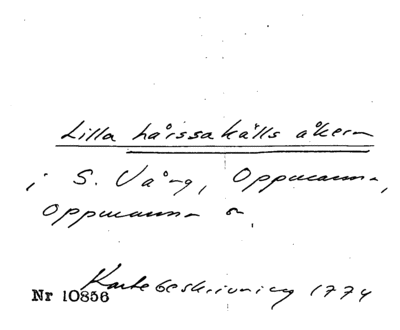 Lilla hårssakälls åkern
i S. Vång, Oppmanna,
Oppmanna sn.
Kartebeskrivning 1774
Nr 10856